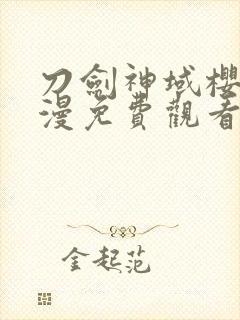 刀劍神域櫻
漫免費觀看
金起范